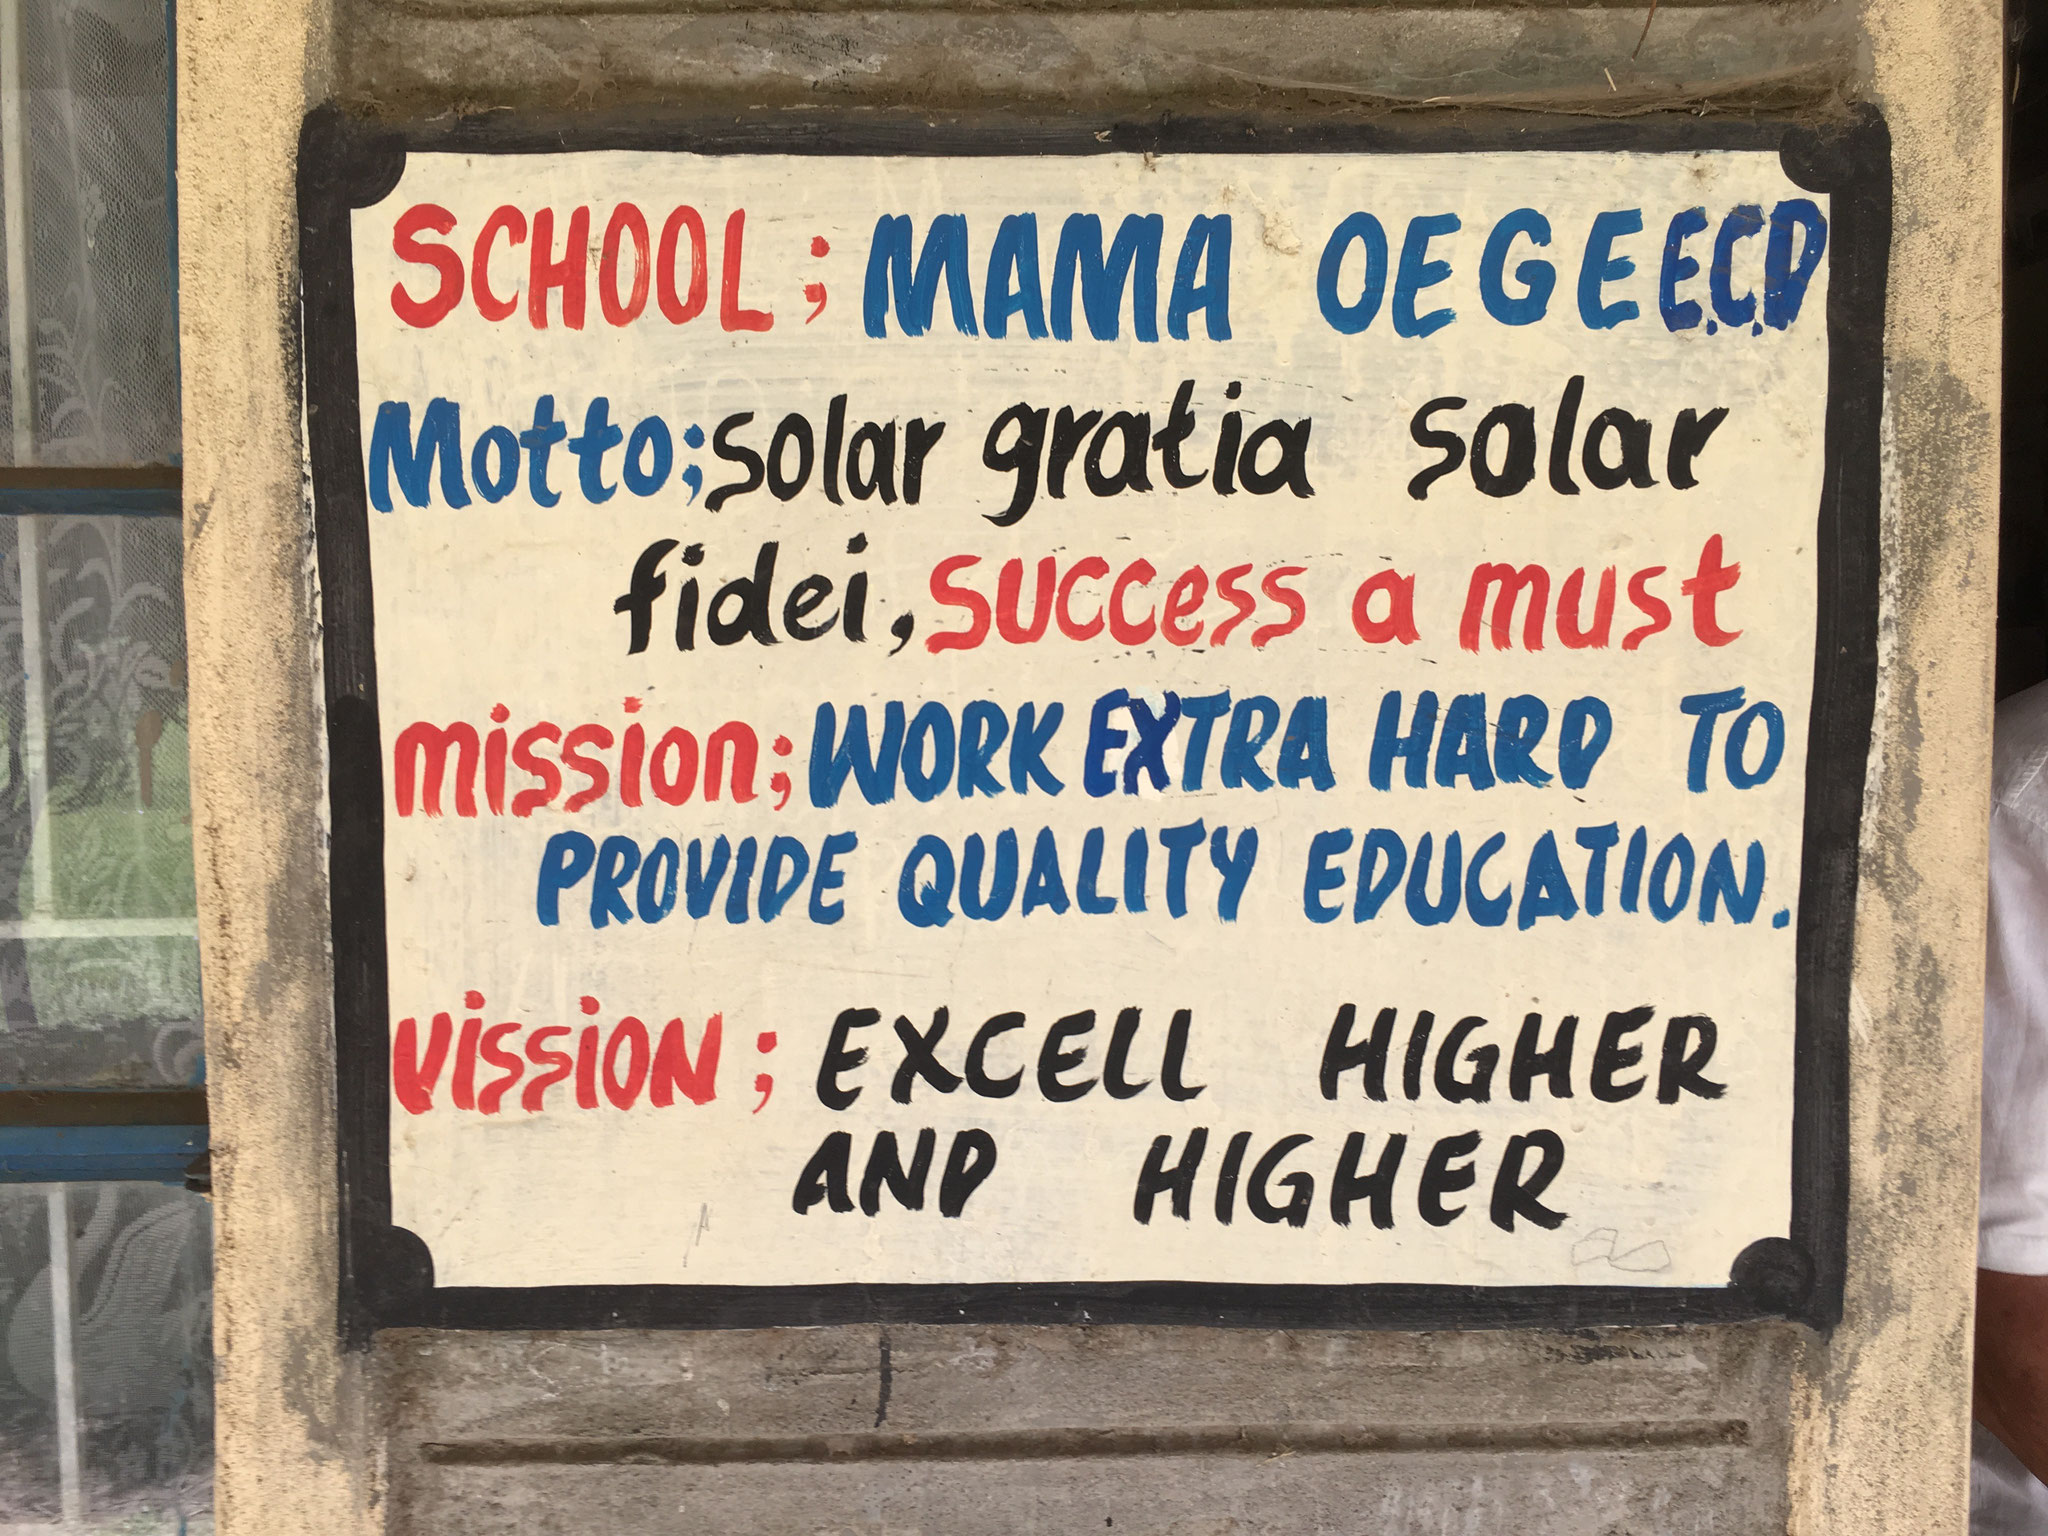 SCHOOL; MAMA OEGE E.C.D
Motto; solar gratia solar
fidei, success a must
mission; WORK EXTRA HARD TO
PROVIDE QUALITY EDUCATION.
vission; EXCELL HIGHER
AND HIGHER